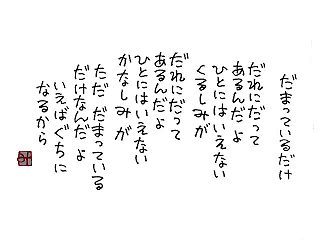 だまっているだけ
だれにだって
あるんだよ
ひとにはいえない
くるしみが
だれにだって
あるんだよ
ひとにはいえない
かなしみが
ただ だまっている
だけなんだよ
いえばぐちに
なるから